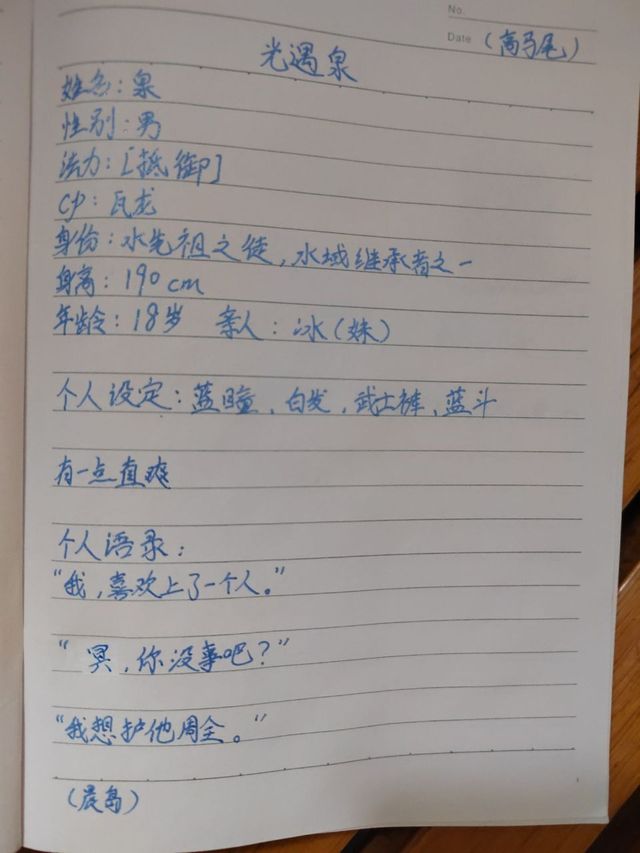 No.
Date （高马尾）
光遇泉
姓名：泉
性别：男
法力：[抵御]
cp：瓦龙
身份：水先祖之徒，水域继承者之一
身高：190cm
年龄：18岁 亲人：冰（妹）
个人设定：蓝瞳、白发，武士裤、蓝斗
有一点直爽
个人语录：
“我，喜欢上了一个人。”
“冥，你没事吧？”
“我想护他周全。”
（晨岛）